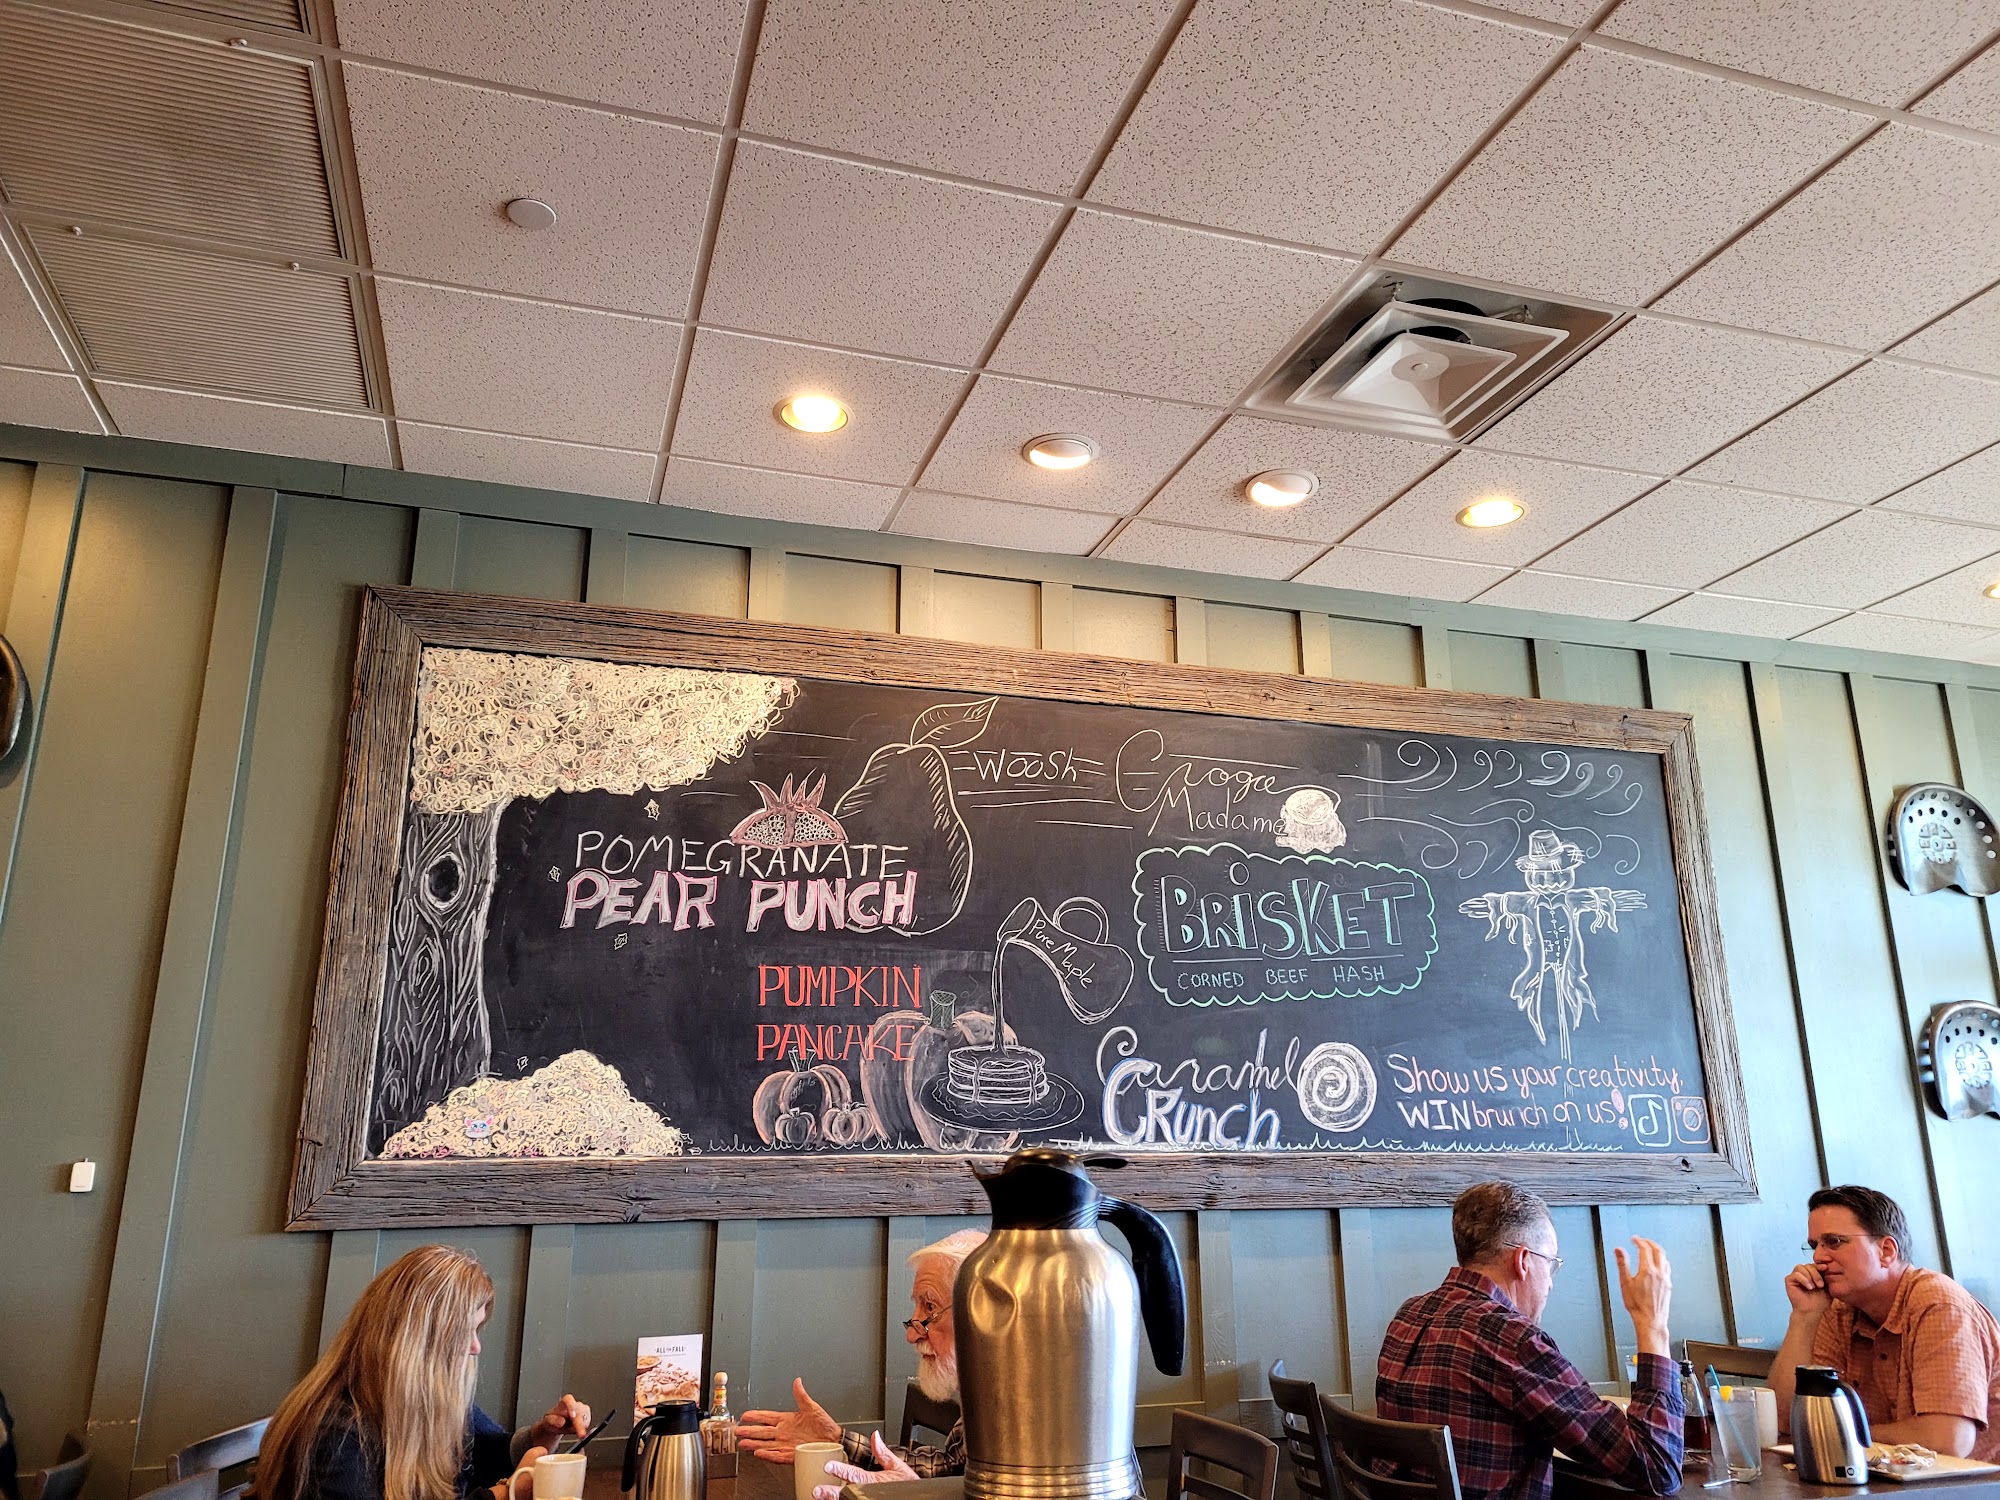 POMEGRANATE
PEAR PUNCH
WOOSH
Crogue
Madame
PUMPKIN
PANCAKE
Pure Maple
BRiSKET
CORNED BEEF HASH
Caramel
CRunch
Show us your creativity,
WIN brunch on us!
ALL FALL